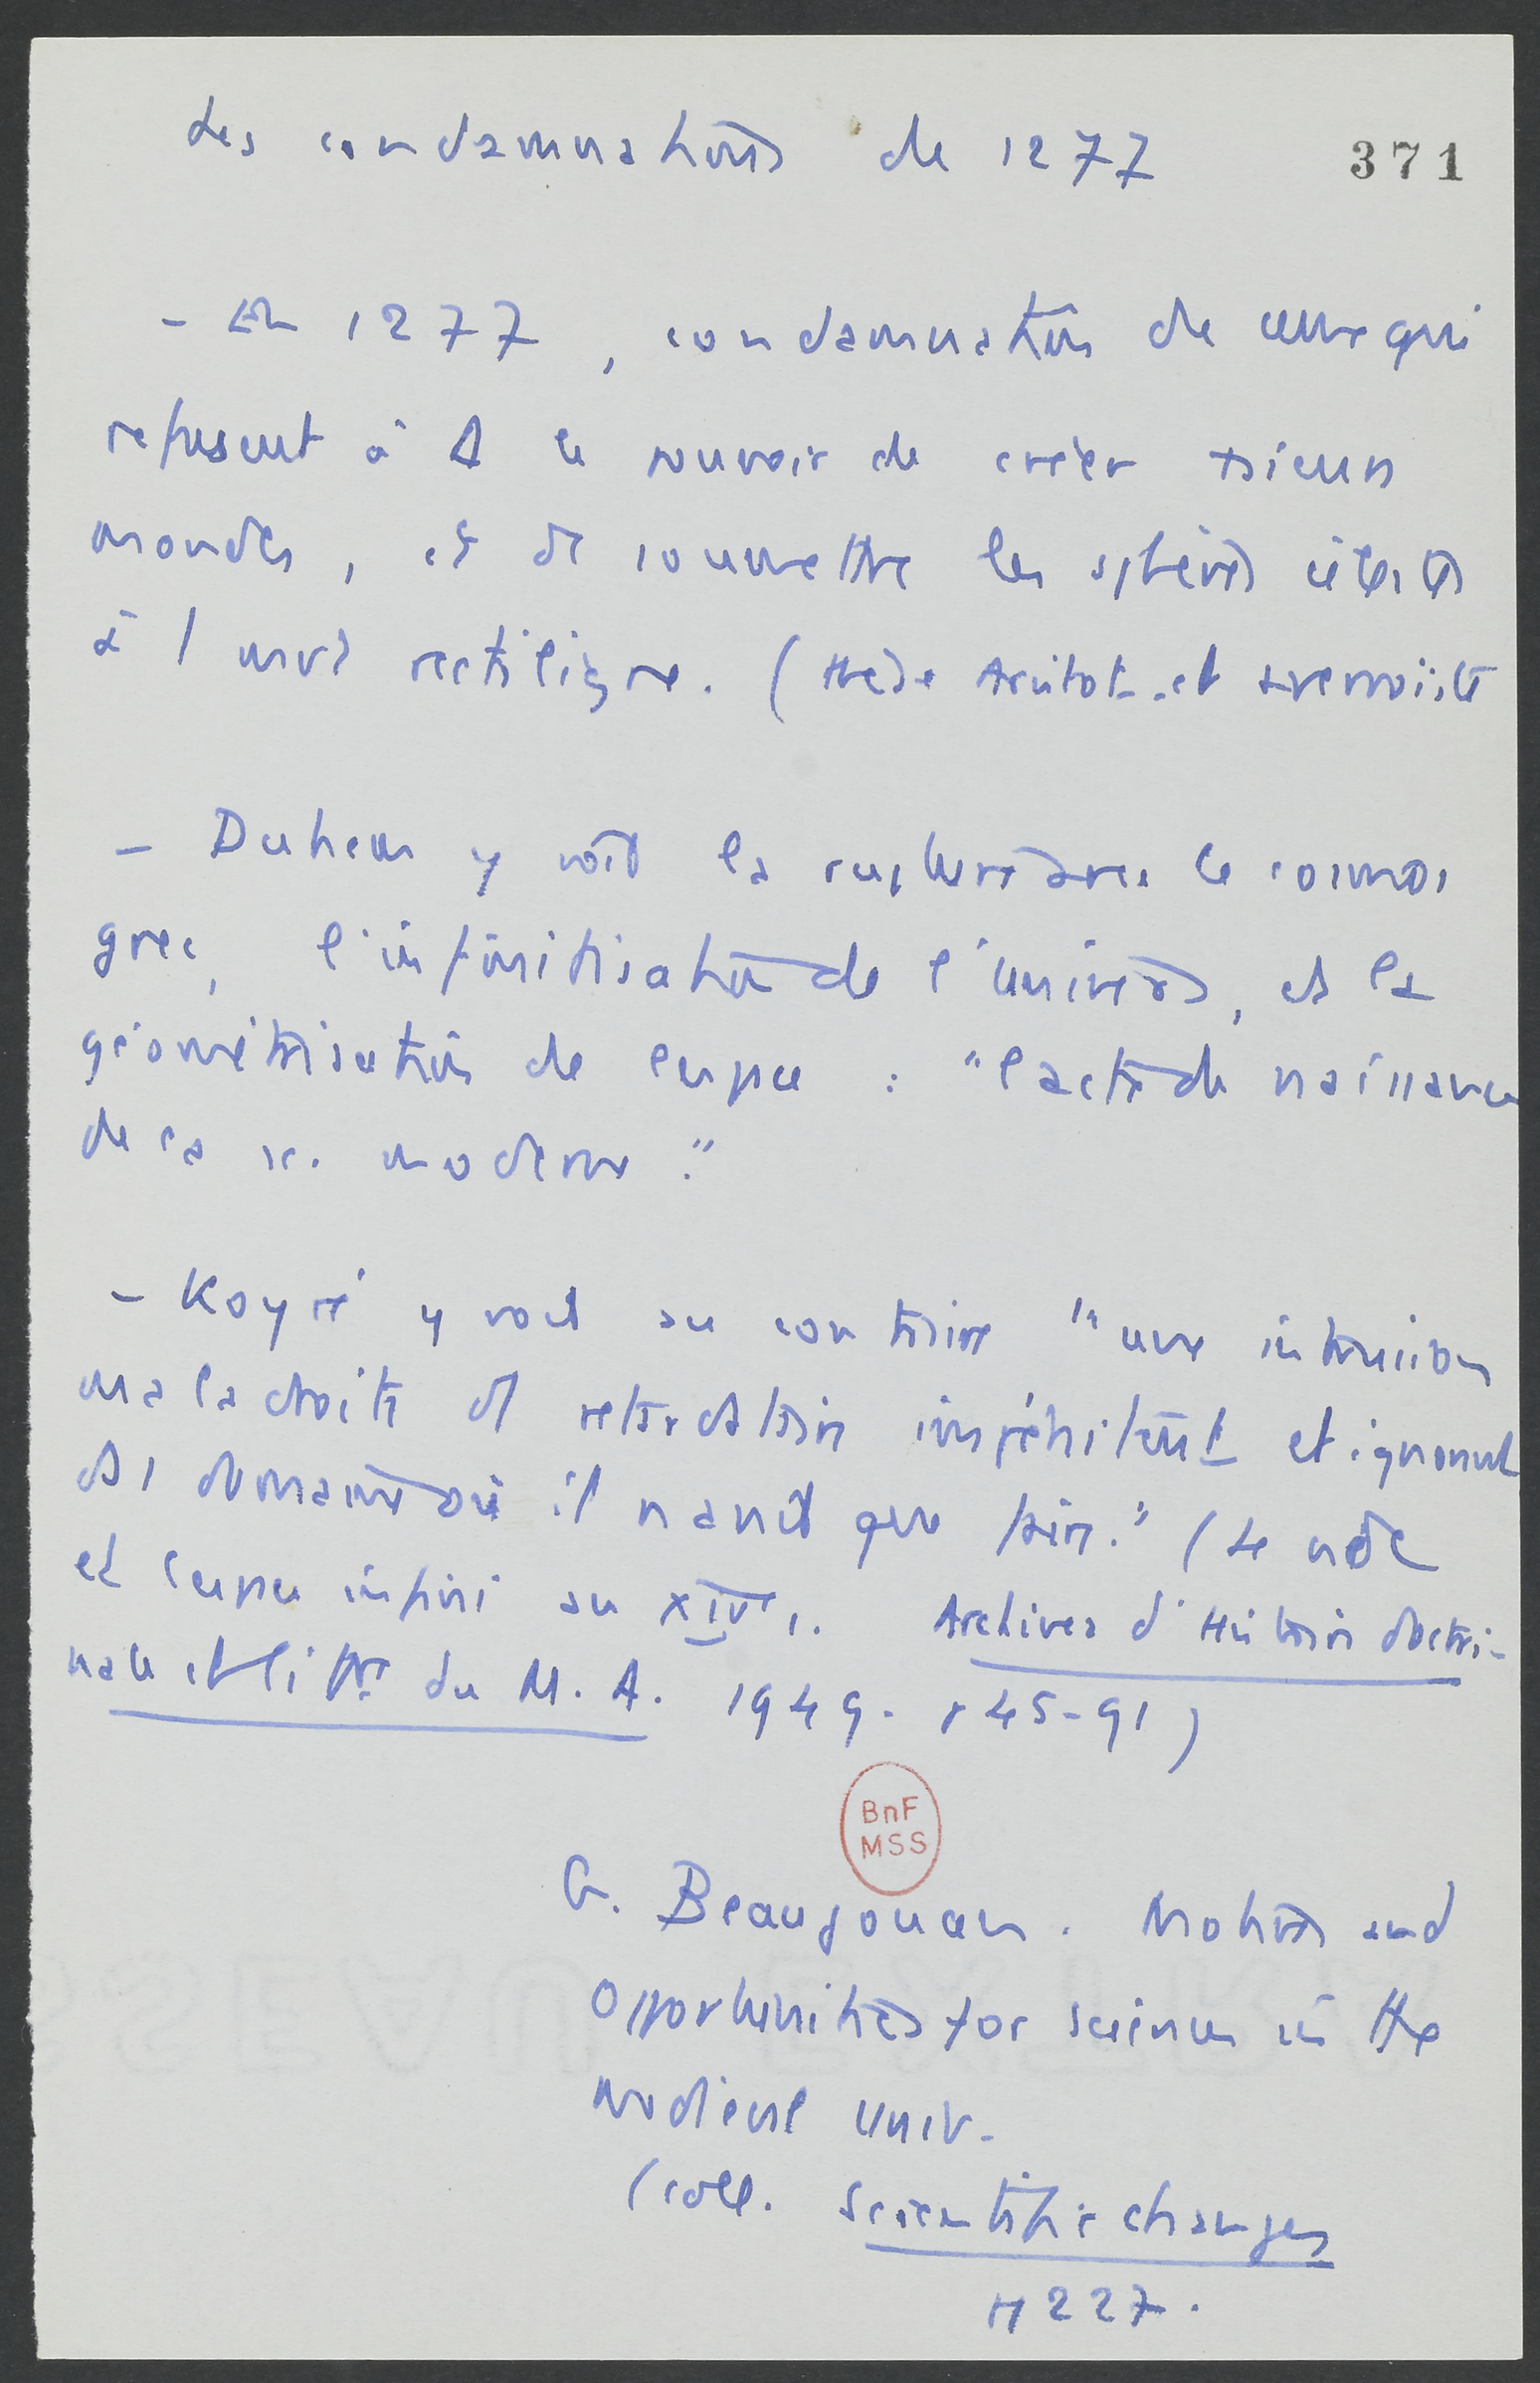 Les condamnations de 1277
371
- En 1277, condamnation de ceux qui
refusent à Δ le pouvoir de créer psieurs
mondes, et de soumettre les sphères célestes
à 1 mvt rectiligne. (thèse Aristot. et averroïste
- Duhem y voit la rupture avec le cosmos
grec, l'infinitisation de l'univers, et la
géométrisation de l'espace : "l'acte de naissance
de la sc. moderne."
- Koyré y voit au contraire "une intrusion
maladroite et retardatrice impénitente et ignorant
d'1 domaine où il n'avait que faire." (Le vide
et l'espace infini au XIVe s. Archives d'Histoire doctri-
nale et littre du M. A. 1949. p 45-91)
BnF
MSS
G. Beaujouan. Motives and
opportunities for science in the
medieval Univ.
(coll. Scientific changes
p 227.